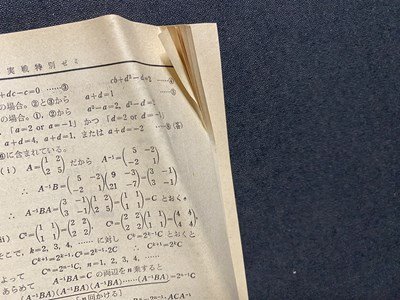 実戦特別ゼミ
+dc−c=0 ……③ cb+d²−d=2 ……④
の場合。②と③から a+d=1 ……⑤
の場合。①, ②から a²−a=2, d²−d=2
「a=2 or a=−1」かつ「d=2 or d=−1」
a+d=4, a+d=1, または a+d=−2 ……⑥(答)
に含まれている。
(i) A=(1 2 2 5)だから A⁻¹=(5 −2 −2 1)
∴ A⁻¹B=(5 −2 −2 1)(9 −3 −21 −7)=(3 −1 3 −1)
∴ A⁻¹BA=(3 −1 3 −1)(1 2 2 5)=(1 1 1 1)=C とおく。
C²=(1 1 1 1)(1 1 1 1)=(2 2 2 2) C³=(2 2 2 2)(1 1 1 1)=(4 4 4 4)
そこで, k=2, 3, 4, …… に対し Cᵏ=2ᵏ⁻¹C とおくと
Cᵏ⁺¹=2ᵏ⁻¹C²=2ᵏ⁻¹·2C ∴ Cᵏ⁺¹=2ᵏC
よって Cⁿ=2ⁿ⁻¹C, n=1, 2, 3, 4, ……
あらためて A⁻¹BA=C の両辺を n乗すると
BA)(A⁻¹BA)(A⁻¹BA)……(A⁻¹BA)=2ⁿ⁻¹C
「n回かける」